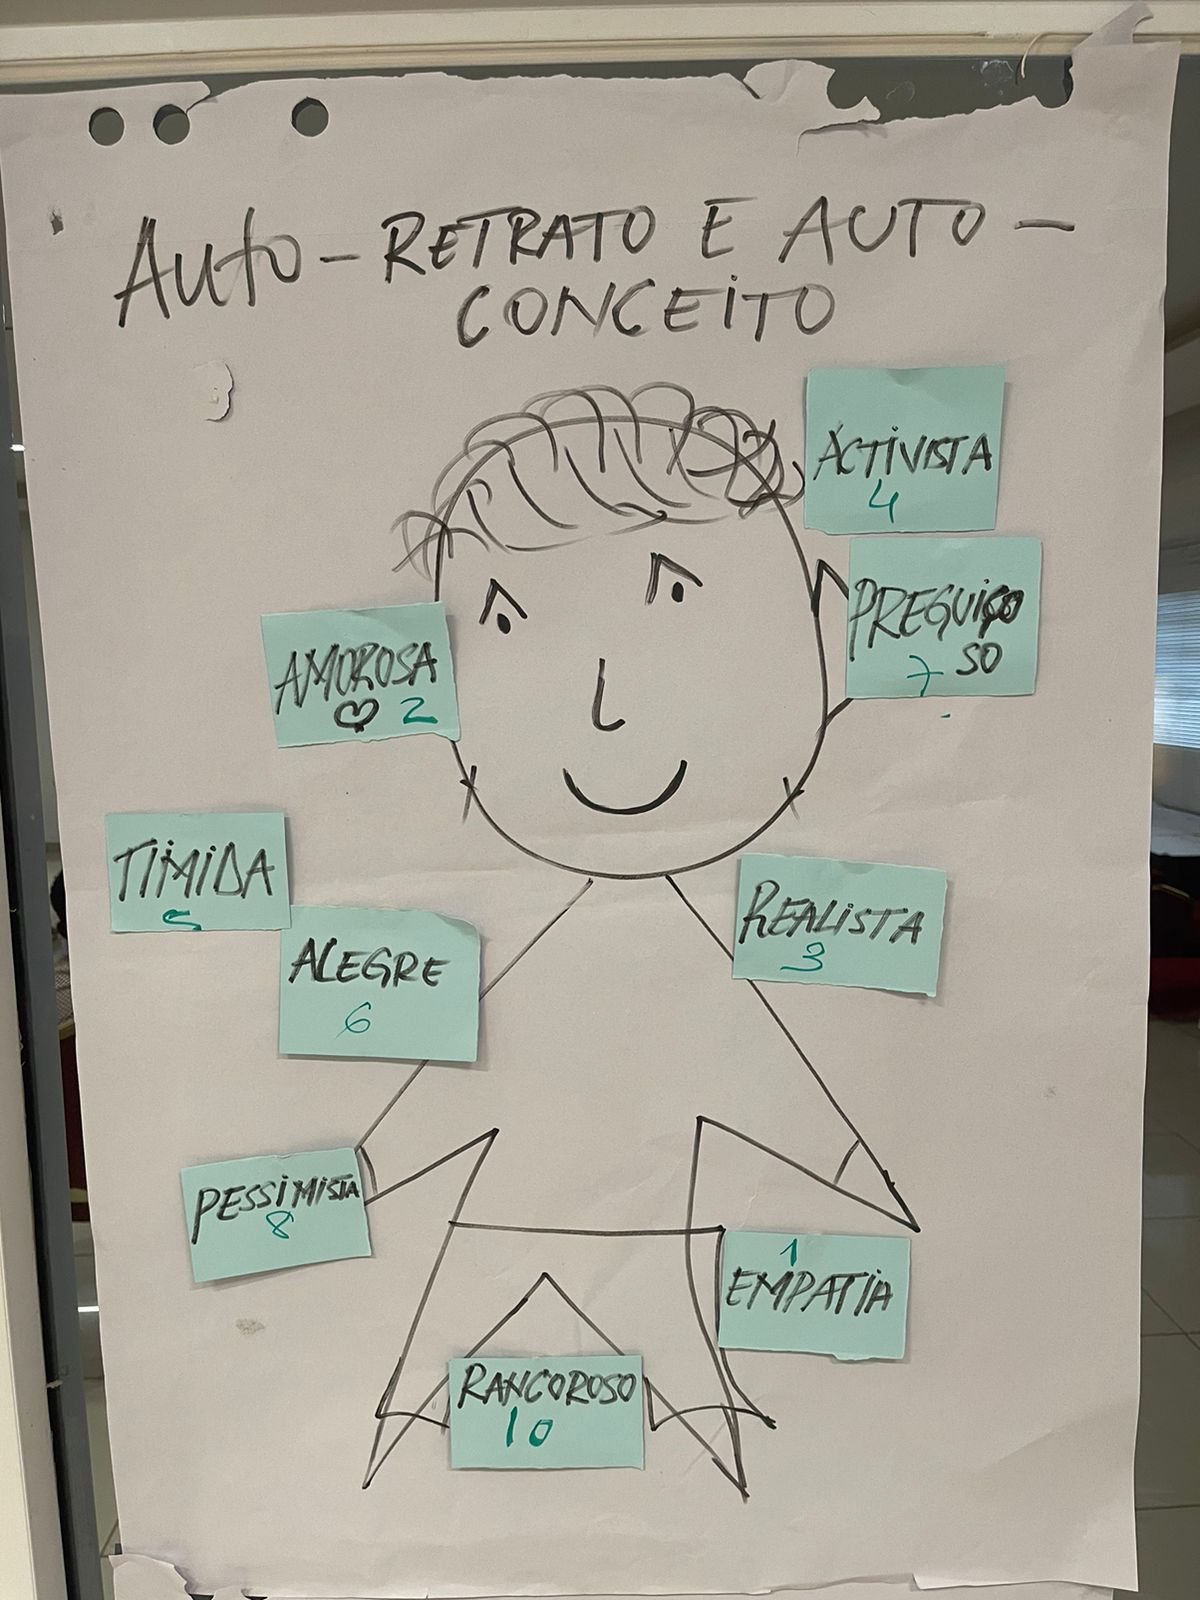 AUTO-RETRATO E AUTO-
CONCEITO
ACTIVISTA
4
PREGUIÇO
SO
7
AMOROSA
2
TIMIDA
5
ALEGRE
6
REALISTA
3
PESSIMISTA
8
1
EMPATIA
RANCOROSO
10